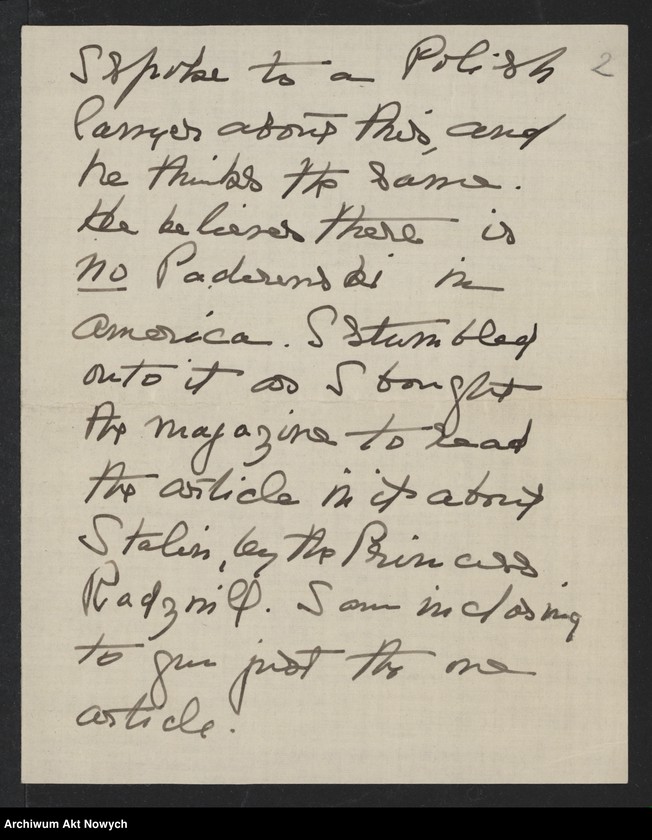 I spoke to a Polish 2
lawyer about this, and
he thinks the same.
He believes there is
no Paderewski in
America. I stumbled
onto it as I bought
the magazine to read
the article in it about
Stalin, by the Princess
Radzwill. I am inclosing
to you just the one
article.
Archiwum Akt Nowych